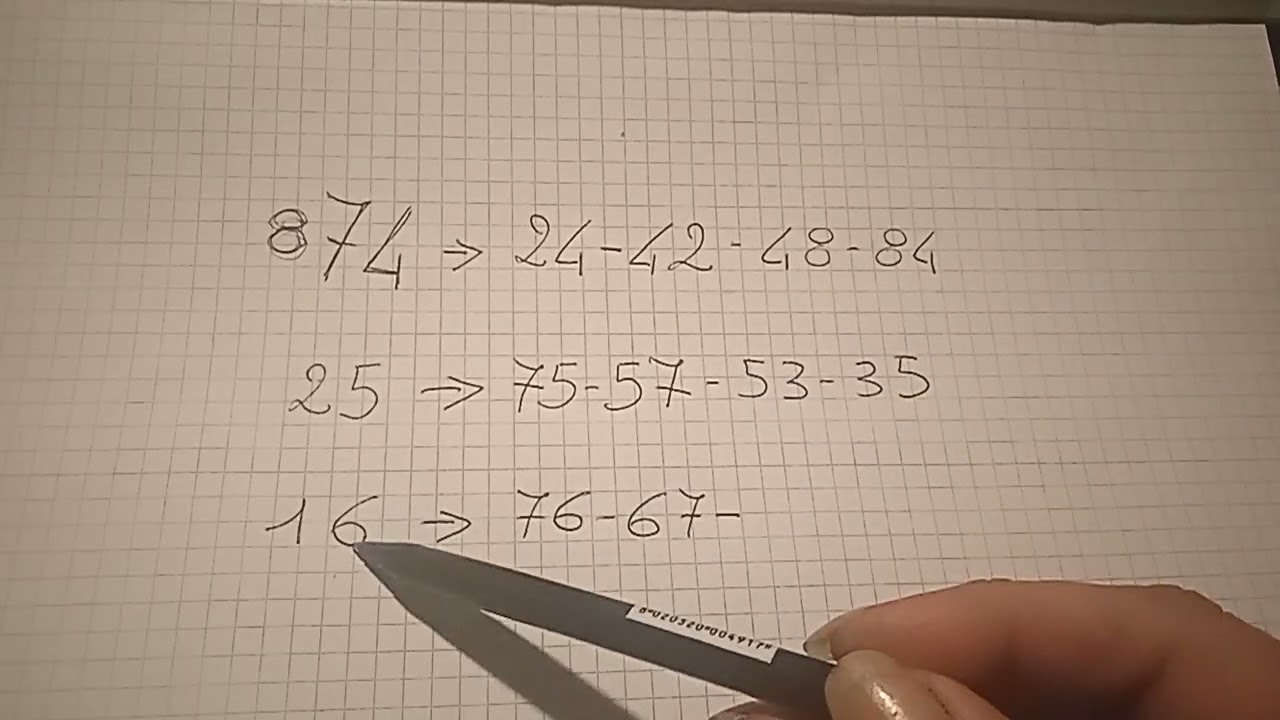 874 → 24-42-48-84
25 → 75-57-53-35
16 → 76-67-
8"020320"004917"